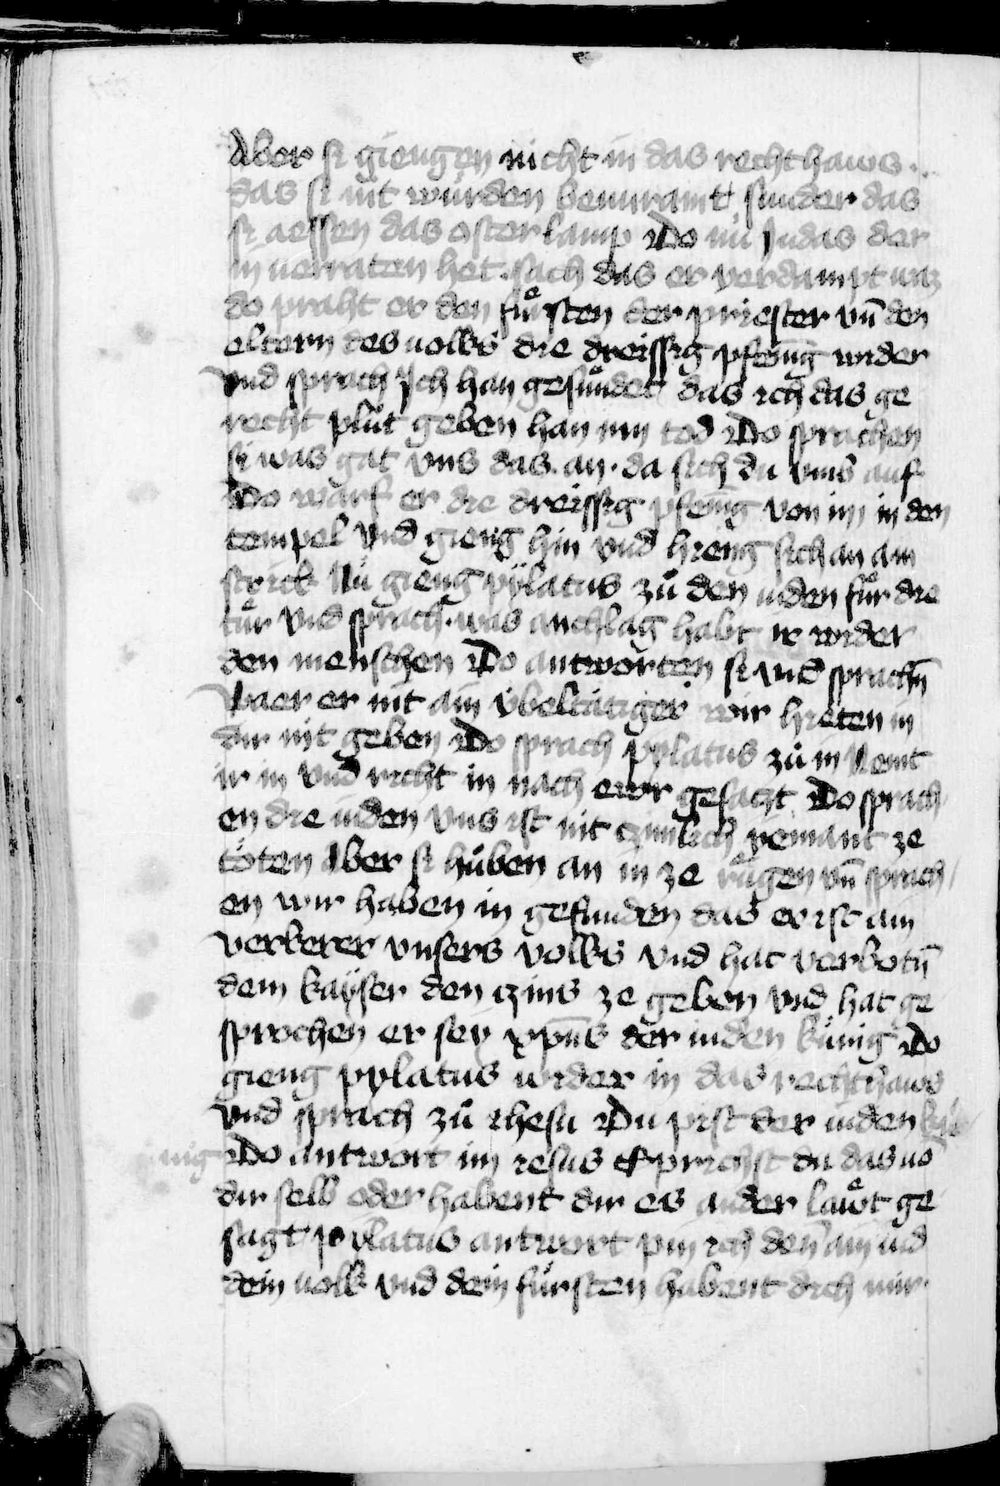 Aber si giengen nicht in das rechthaws.
das si nit würden vermramt sunder das
si aessen das osterlamp Do nu Judas der
in verraten het. sach das er verdampt waz
do praht er den fuͤrsten der priester vn̄ den
eltern des uolks die dreissig pfenīg wider
Vnd sprach Jch han gesundet das ich das ge
recht plut geben han inn tod Do sprachen
si was gat vns das. an. da sich du vmb auf
Do warf er die dreissig pfenīg von im in den
tempel vnd gieng hin vnd hieng sich an am
strick Nu gieng pylatus zů den iuden fuͤr die
tuͤr vnd sprach. was anchlag habt ir wider
den menschen Do antworten si vnd sprachn̄
Waer er nit ain vbeltätiger wir hieten in
dir nit geben Do sprach pylatus zů in Nemt
ir in vnd richt in nach ewr gesaczt Do sprach
en die iuden vns ist nit czimlich yemant ze
töten Aber si huben an in ze ruͤgen vn̄ sprach
en wir haben in gefunden das er ist ain
verkerer vnsers volks vnd hat verbotn̄
dem kayser den czins ze geben vnd hat ge
sprochen er sey xp̄us der iuden kunig Do
gieng pylatus wider in das rechthaws
vnd sprach zů ihesu Du pist der iuden kü
nig Do antwort im iesus Sprichst du das uō
dir selb oder habent dir es ander lawt ge
sagt pylatus antwort pin ich den̄ ain iud
dein uolk vnd dein fuͤrsten habent dich mir